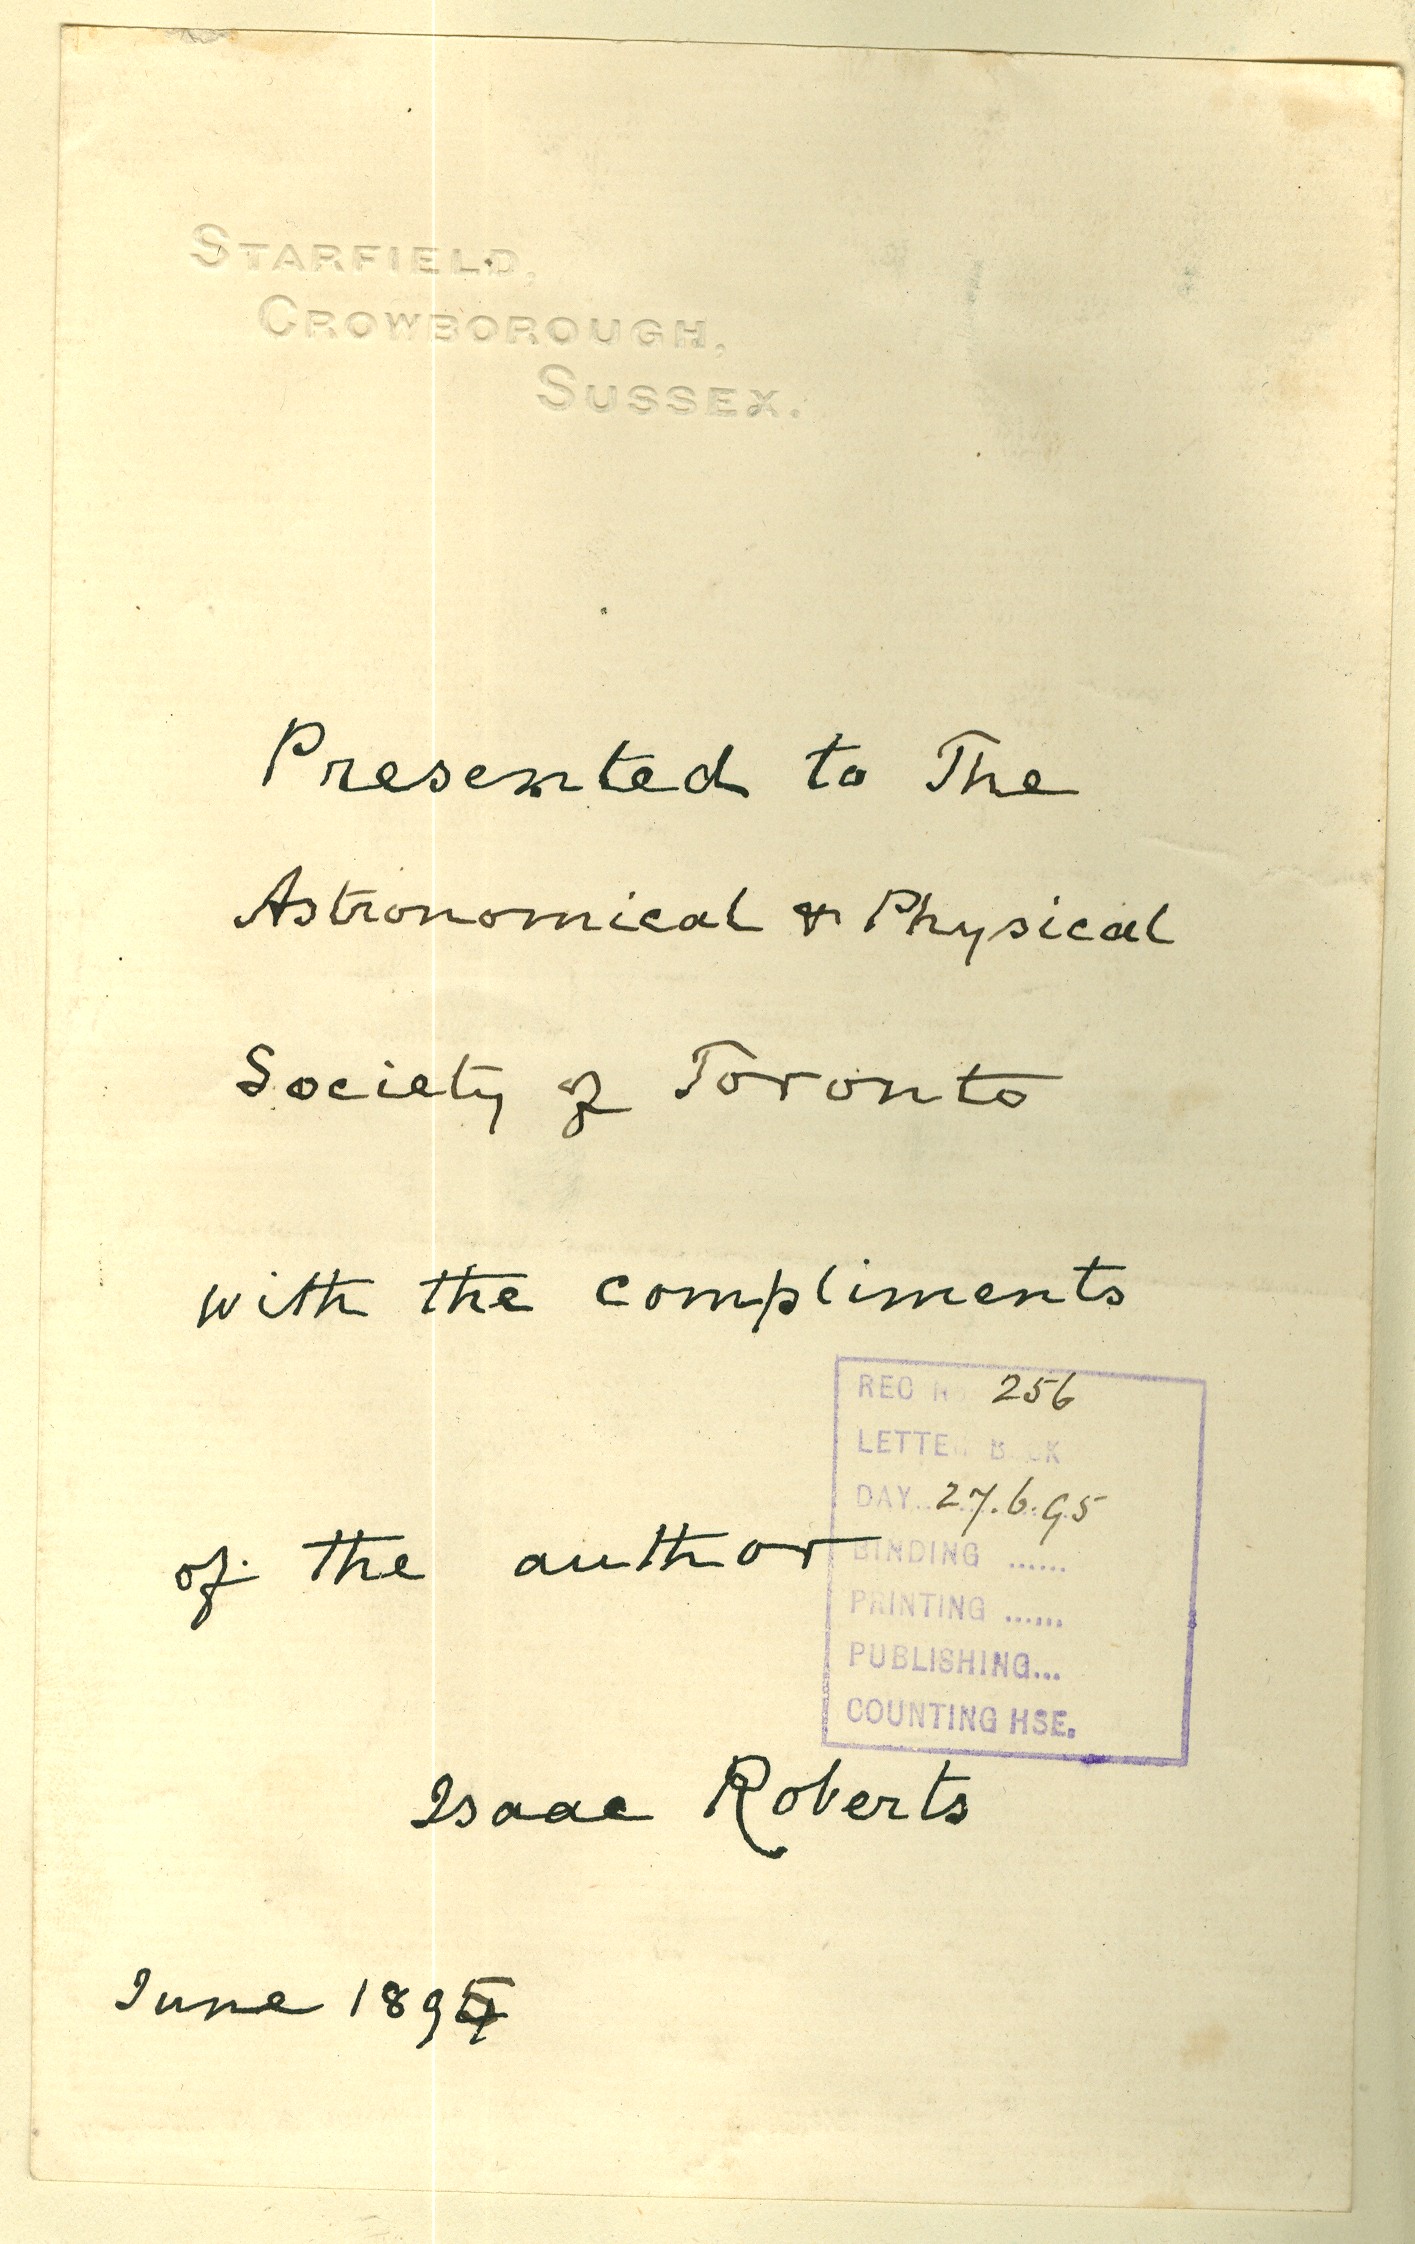 STARFIELD,
CROWBOROUGH,
SUSSEX.
Presented to The
Astronomical & Physical
Society of Toronto
with the compliments
REC 256
LETTER BOOK
DAY.. 27.6.95
of the author
BINDING ......
PRINTING ......
PUBLISHING...
COUNTING HSE.
Isaac Roberts
June 1895